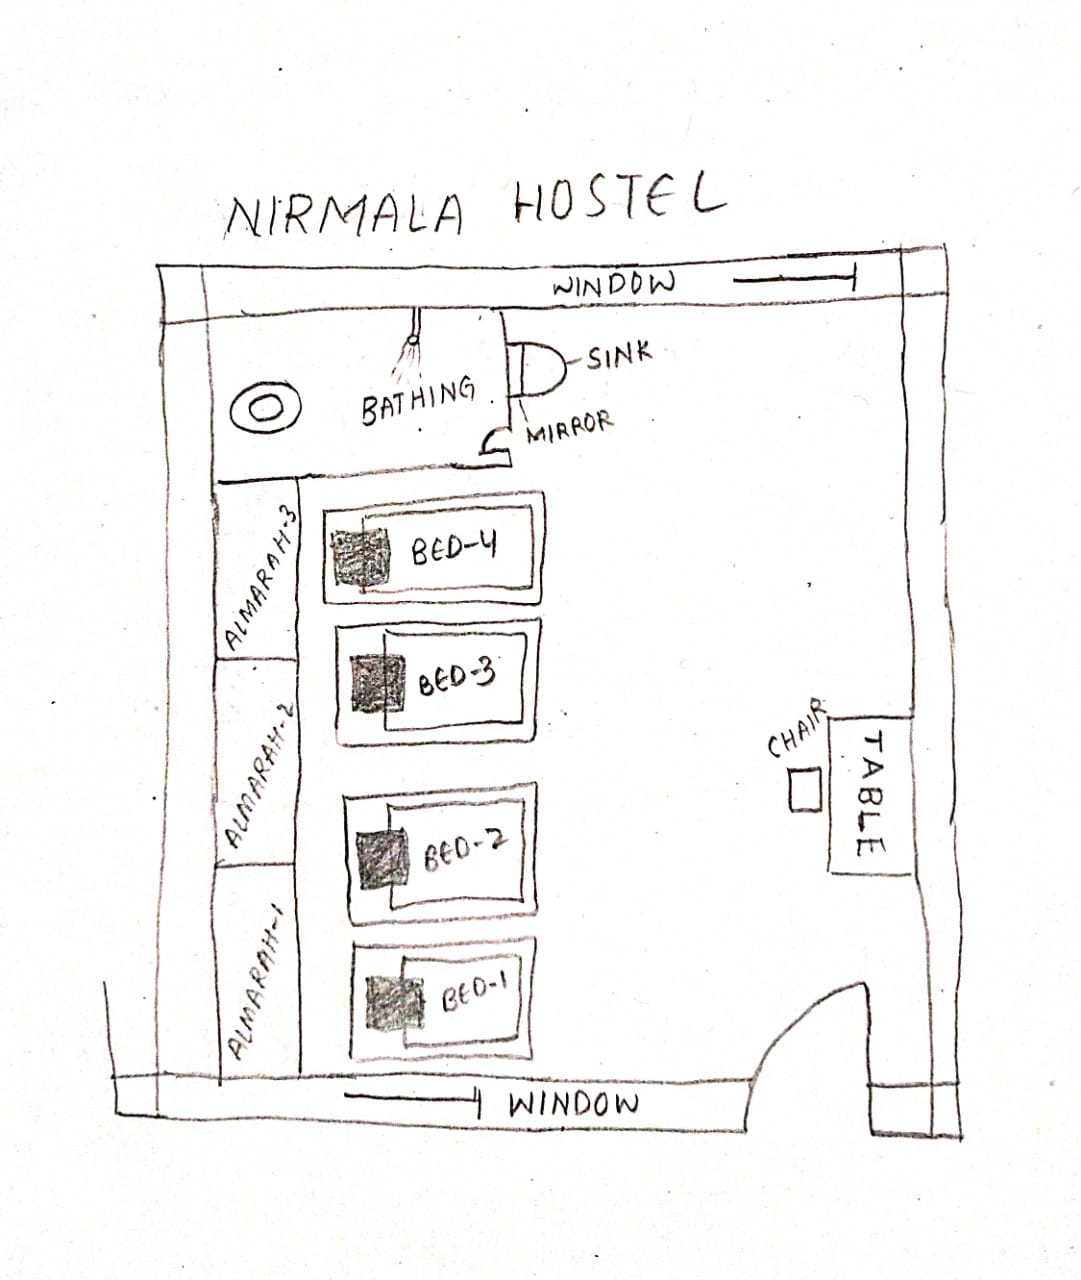 NIRMALA HOSTEL
WINDOW
SINK
BATHING
MIRROR
ALMARAH-3
BED-4
BED-3
ALMARAH-2
CHAIR
TABLE
BED-2
ALMARAH-1
BED-1
WINDOW